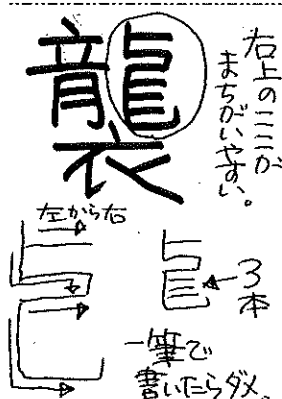 襲
右上のここが
まちがいやすい。
左から右
3本
一筆で
書いたらダメ。